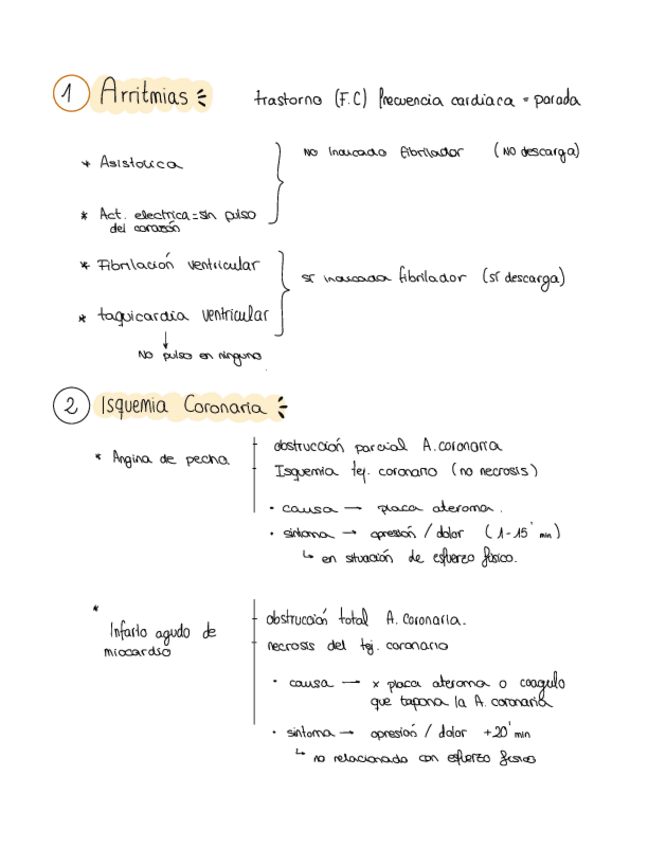 1 Arritmias
trastorno (F.C) frecuencia cardiaca = parada
* Asistolica
No Indicado fibrilador (NO descarga)
* Act. electrica = sin pulso
del corazón
* Fibrilación ventricular
sí indicada fibrilador (sí descarga)
* taquicardia ventricular
↓
No pulso en ninguno
2 Isquemia Coronaria
* Angina de pecho.
obstrucción parcial A. coronaria
Isquemia tej. coronario (no necrosis)
• causa → placa ateroma.
• sintoma → opresión / dolor (1-15' min)
↳ en situación de esfuerzo físico.
* Infarto agudo de
miocardio
obstrucción total A. Coronaria.
necrosis del tej. coronario
• causa → x placa ateroma o coagulo
que tapona la A. coronaria
• sintoma → opresión / dolor +20' min
↳ no relacionado con esfuerzo fisico